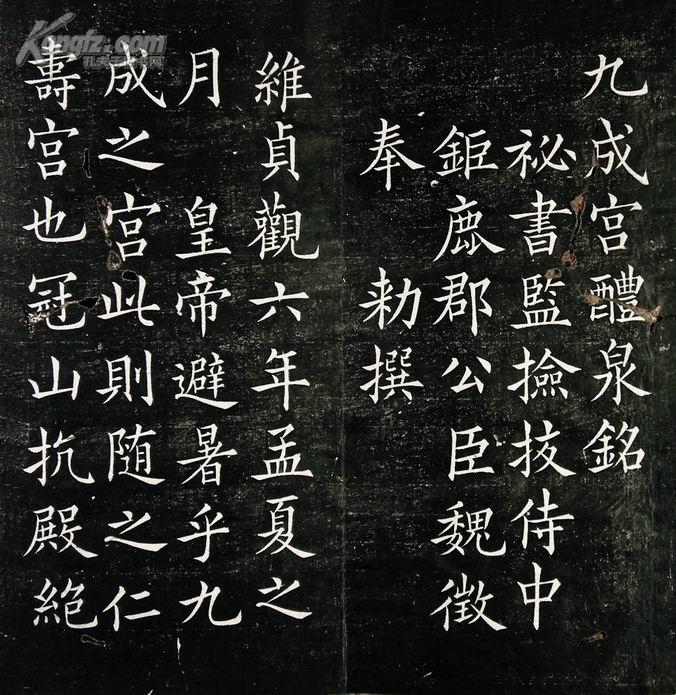 九成宮醴泉銘
祕書監撿挍侍中
鉅鹿郡公臣魏徵
奉 勑撰
維貞觀六年孟夏之
月 皇帝避暑乎九
成之宮此則随之仁
壽宮也冠山抗殿絶
Kongfz.com
孔夫子旧书网